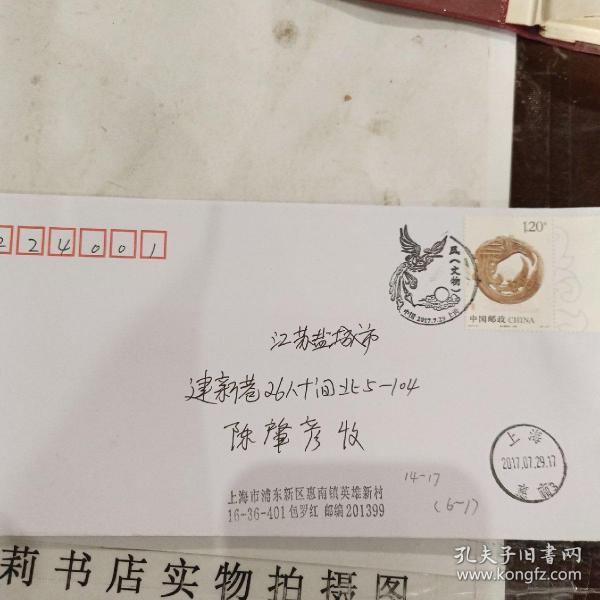 224001
凤(文物)
中国 2017.7.29 上海
1.20元
中国邮政 CHINA
江苏盐城市
建新巷26人十间北5-104
陈肇彦收
上海
2017.07.29.17
14-17
(6-1)
上海市浦东新区惠南镇英雄新村
16-36-401 包罗红 邮编201399
莉书店实物拍摄图
孔夫子旧书网
www.kongfz.com